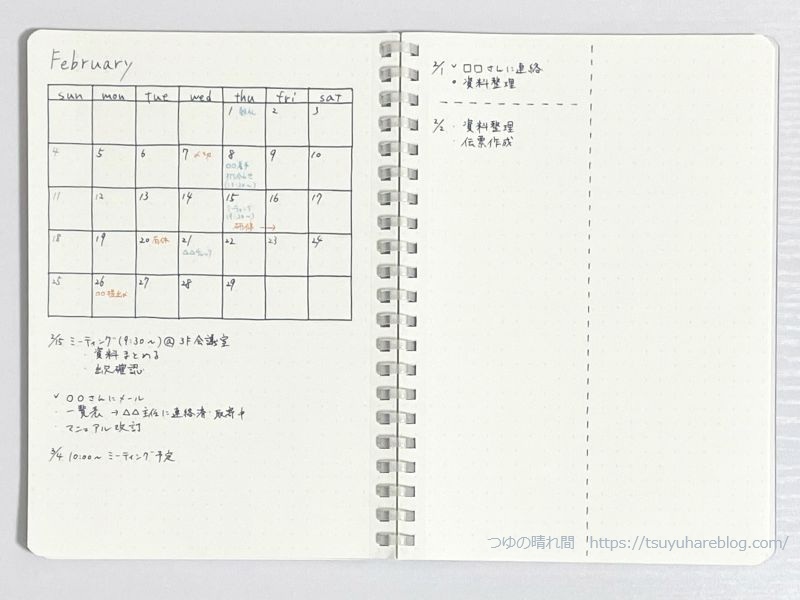 February
sun mon tue wed thu fri sat
1 2 3
4 5 6 7 〆切 8 9 10
〇〇着手
打ち合わせ
(13:30〜)
11 12 13 14 15 16 17
ミーティング
(9:30〜)
研修 →
18 19 20 有休 21 22 23 24
△△チェック
25 26 27 28 29
〇〇提出〆
2/15 ミーティング(9:30〜)@3F会議室
・資料まとめる
・出欠確認
✓ 〇〇さんにメール
・一覧表 → △△主任に連絡済・取寄中
・マニュアル改訂
3/4 10:00〜 ミーティング予定
2/1 ✓ □□さんに連絡
• 資料整理
2/2 ・資料整理
・伝票作成
つゆの晴れ間 https://tsuyuhareblog.com/